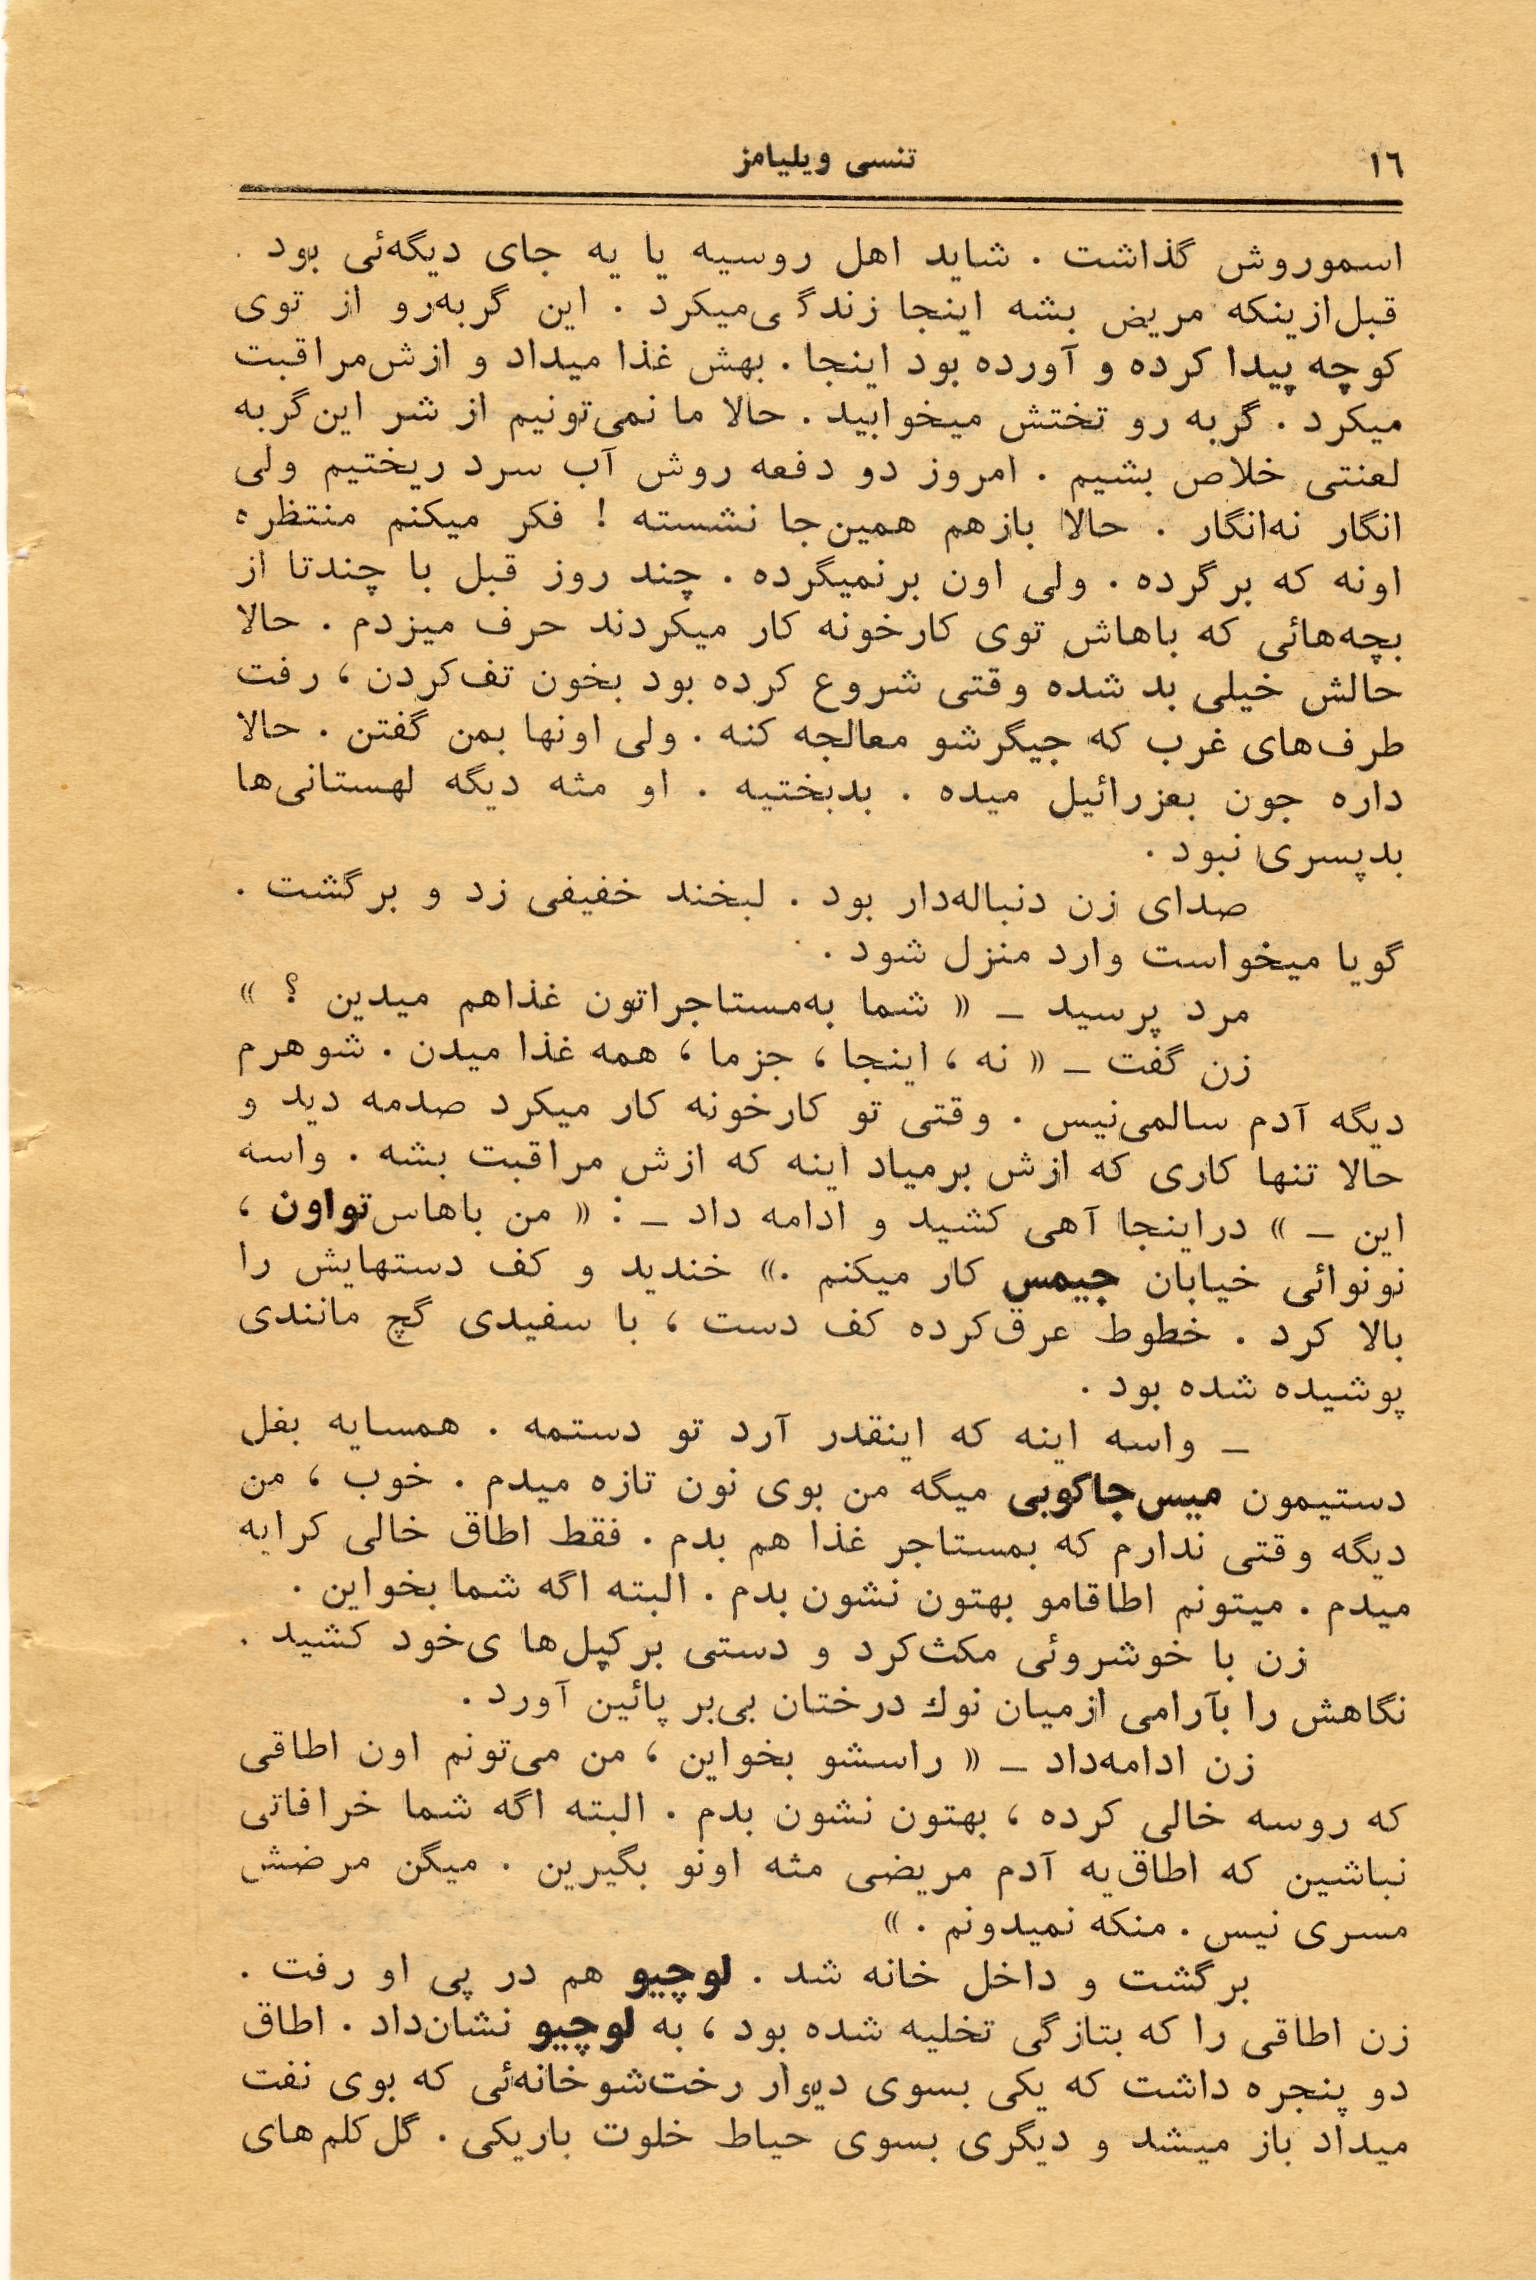 ١٦
تنسی ویلیامز
اسموروش گذاشت . شاید اهل روسیه یا یه جای دیگه‌ئی بود .
قبل‌ازینکه مریض بشه اینجا زندگی‌میکرد . این گربه‌رو از توی
کوچه پیدا کرده و آورده بود اینجا . بهش غذا میداد و ازش‌مراقبت
میکرد . گربه رو تختش میخوابید . حالا ما نمی‌تونیم از شر این‌گربه
لعنتی خلاص بشیم . امروز دو دفعه روش آب سرد ریختیم ولی
انگار نه‌انگار . حالا بازهم همین‌جا نشسته ! فکر میکنم منتظره
اونه که برگرده . ولی اون برنمیگرده . چند روز قبل با چندتا از
بچه‌هائی که باهاش توی کارخونه کار میکردند حرف میزدم . حالا
حالش خیلی بد شده وقتی شروع کرده بود بخون تف‌کردن ، رفت
طرف‌های غرب که جیگرشو معالجه کنه . ولی اونها بمن گفتن . حالا
داره جون بعزرائیل میده . بدبختیه . او مثه دیگه لهستانی‌ها
بدپسری نبود .
صدای زن دنباله‌دار بود . لبخند خفیفی زد و برگشت .
گویا میخواست وارد منزل شود .
مرد پرسید ــ « شما به‌مستاجراتون غذاهم میدین ؟ »
زن گفت ــ « نه ، اینجا ، جزما ، همه غذا میدن . شوهرم
دیگه آدم سالمی‌نیس . وقتی تو کارخونه کار میکرد صدمه دید و
حالا تنها کاری که ازش برمیاد اینه که ازش مراقبت بشه . واسه
این ــ » دراینجا آهی کشید و ادامه داد ــ : « من باهاس‌تواون ،
نونوائی خیابان جیمس کار میکنم .» خندید و کف دستهایش را
بالا کرد . خطوط عرق‌کرده کف دست ، با سفیدی گچ مانندی
پوشیده شده بود .
ــ واسه اینه که اینقدر آرد تو دستمه . همسایه بغل
دستیمون میس‌جاکوبی میگه من بوی نون تازه میدم . خوب ، من
دیگه وقتی ندارم که بمستاجر غذا هم بدم . فقط اطاق خالی کرایه
میدم . میتونم اطاقامو بهتون نشون بدم . البته اگه شما بخواین .
زن با خوشروئی مکث‌کرد و دستی برکپل‌ها ی‌خود کشید .
نگاهش را بآرامی ازمیان نوك درختان بی‌بر پائین آورد .
زن ادامه‌داد ــ « راسشو بخواین ، من می‌تونم اون اطاقی
که روسه خالی کرده ، بهتون نشون بدم . البته اگه شما خرافاتی
نباشین که اطاق‌یه آدم مریضی مثه اونو بگیرین . میگن مرضش
مسری نیس . منکه نمیدونم . »
برگشت و داخل خانه شد . لوچیو هم در پی او رفت .
زن اطاقی را که بتازگی تخلیه شده بود ، به لوچیو نشان‌داد . اطاق
دو پنجره داشت که یکی بسوی دیوار رخت‌شوخانه‌ئی که بوی نفت
میداد باز میشد و دیگری بسوی حیاط خلوت باریکی . گل‌کلم‌های